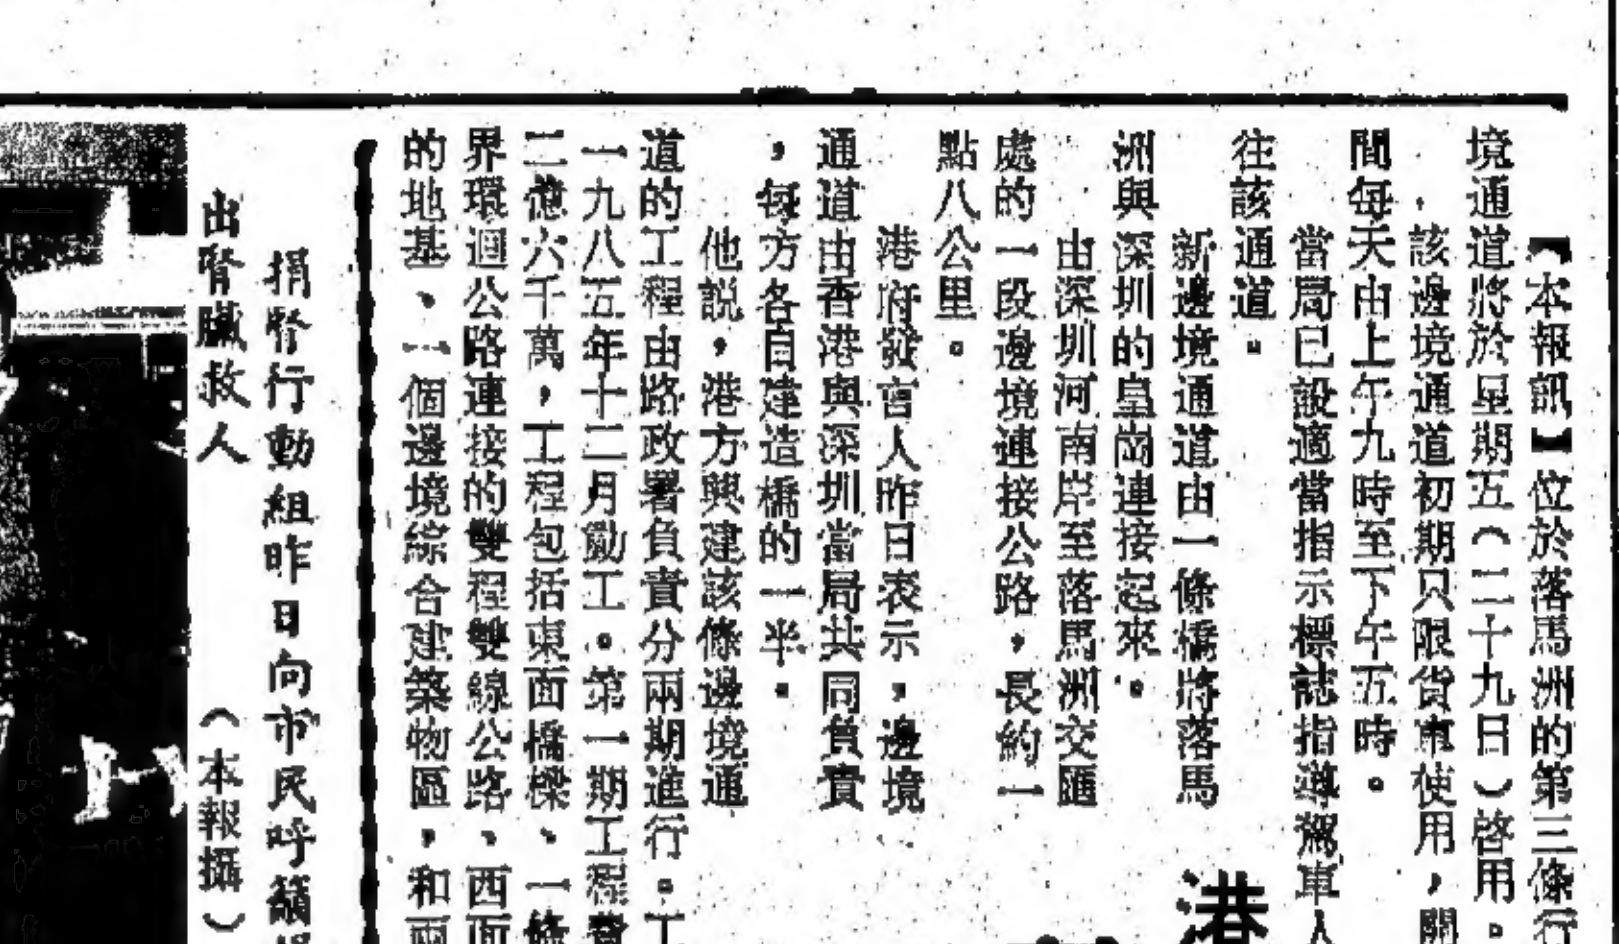 【本報訊】位於落馬洲的第三條行
境通道將於星期五(二十九日)啓用。
該邊境通道初期只限貨車使用,開
間每天由上午九時至下午五時。
當局已設適當指示標誌指導駕車人
往該通道。
新邊境通道由一條橋將落馬
洲與深圳的皇崗連接起來。
由深圳河南岸至落馬洲交匯
處的一段邊境連接公路,長約一
點八公里。
港府發言人昨日表示,邊境
通道由香港與深圳當局共同負責
,每方各自建造橋的一半。
他說,港方興建該條邊境通
道的工程由路政署負責分兩期進行。工
一九八五年十二月動工。第一期工程費
二億六千萬,工程包括東面橋樑、一條
界環迴公路連接的雙程雙線公路、西面
的地基、一個邊境綜合建築物區,和兩
港
捐腎行動組昨日向市民呼籲捐
出腎臟救人 (本報攝)